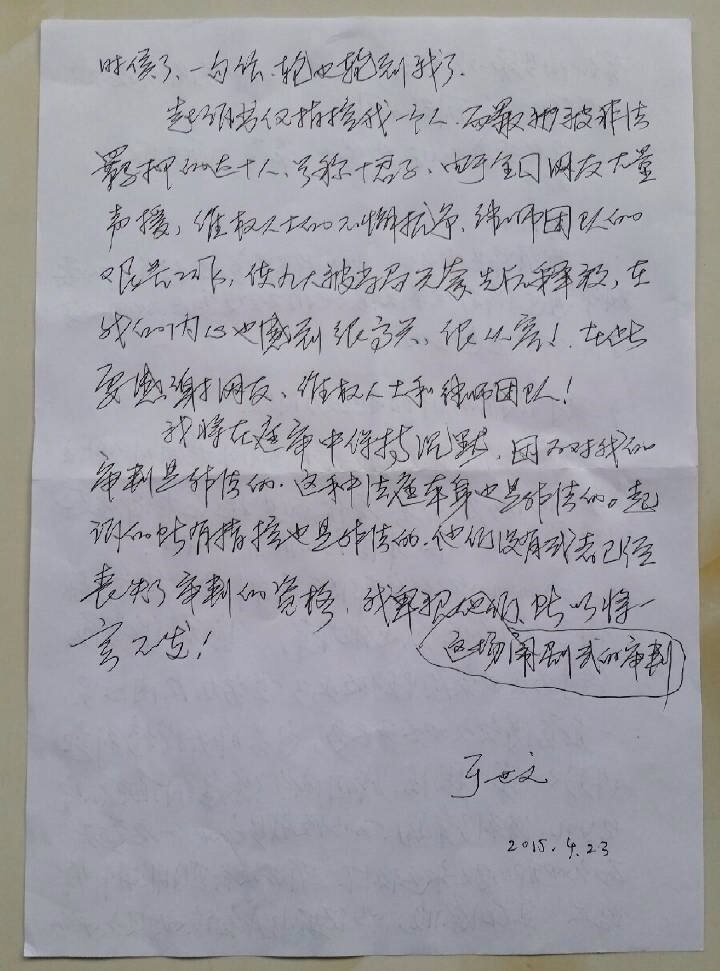 时候了、一句话、轮也轮到我了。
起诉书仅指控我一个人、而最初被非法
羁押的达十人、号称十君子、由于全国网友大量
声援，维权人士的不懈抗争、律师团队的
艰苦工作，使九人被当局先后释放，在
我的内心也感到很高兴、很欣慰！在此
要感谢网友、维权人士和律师团队！
我将在庭审中保持沉默，因为对我的
审判是非法的．这种法庭本身也是非法的。起
诉的所有指控也是非法的．他们没有或者已经
丧失了审判的资格，我鄙视他们、所以将一
言不发！
这场闹剧式的审判
于世文
2015.4.23